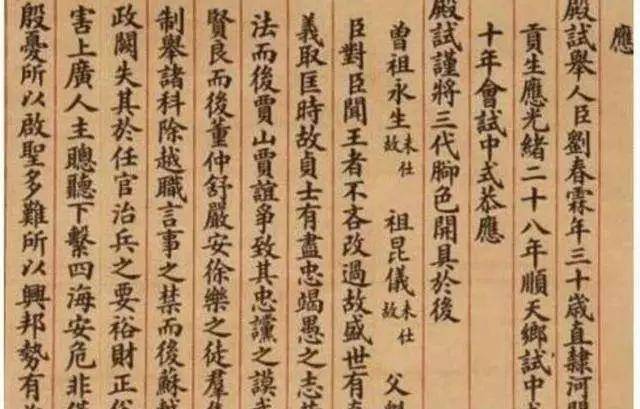 應
殿試舉人臣劉春霖年三十歲直隸河間
貢生應光緒二十八年順天鄉試中
十年會試中式恭應
殿試謹將三代腳色開具於後
曾祖永生未仕故 祖昆儀未仕故 父
臣對臣聞王者不吝改過故盛世有
義取匡時故貞士有盡忠竭愚之志
法而後賈山賈誼爭致其忠讜之謨
賢良而後董仲舒嚴安徐樂之徒羣
制舉諸科除越職言事之禁而後蘇
政闕失其於任官治兵之要裕財正俗
害上廣人主聰聽下繫四海安危非
殷憂所以啟聖多難所以興邦勢有